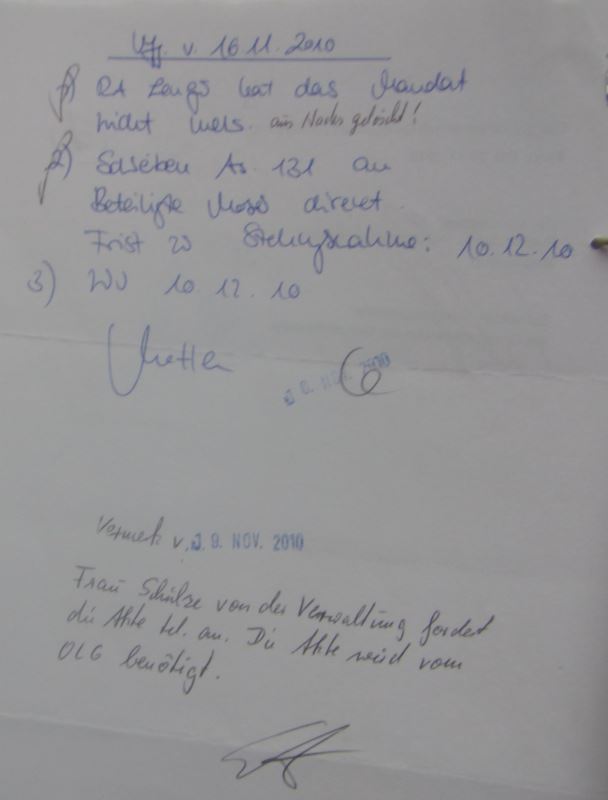 Vfg. v. 16.11.2010
1) RA hat das Mandat
nicht mehr. aus Nodes gelöscht!
2) Schreiben As 131 an
Beteiligte direkt.
Frist zu Stellungnahme: 10.12.10
3) WV 10.12.10
NOV. 2010
Vermerk v. 19. NOV. 2010
Frau Schulze von der Verwaltung fordert
die Akte tel. an. Die Akte wird vom
OLG benötigt.